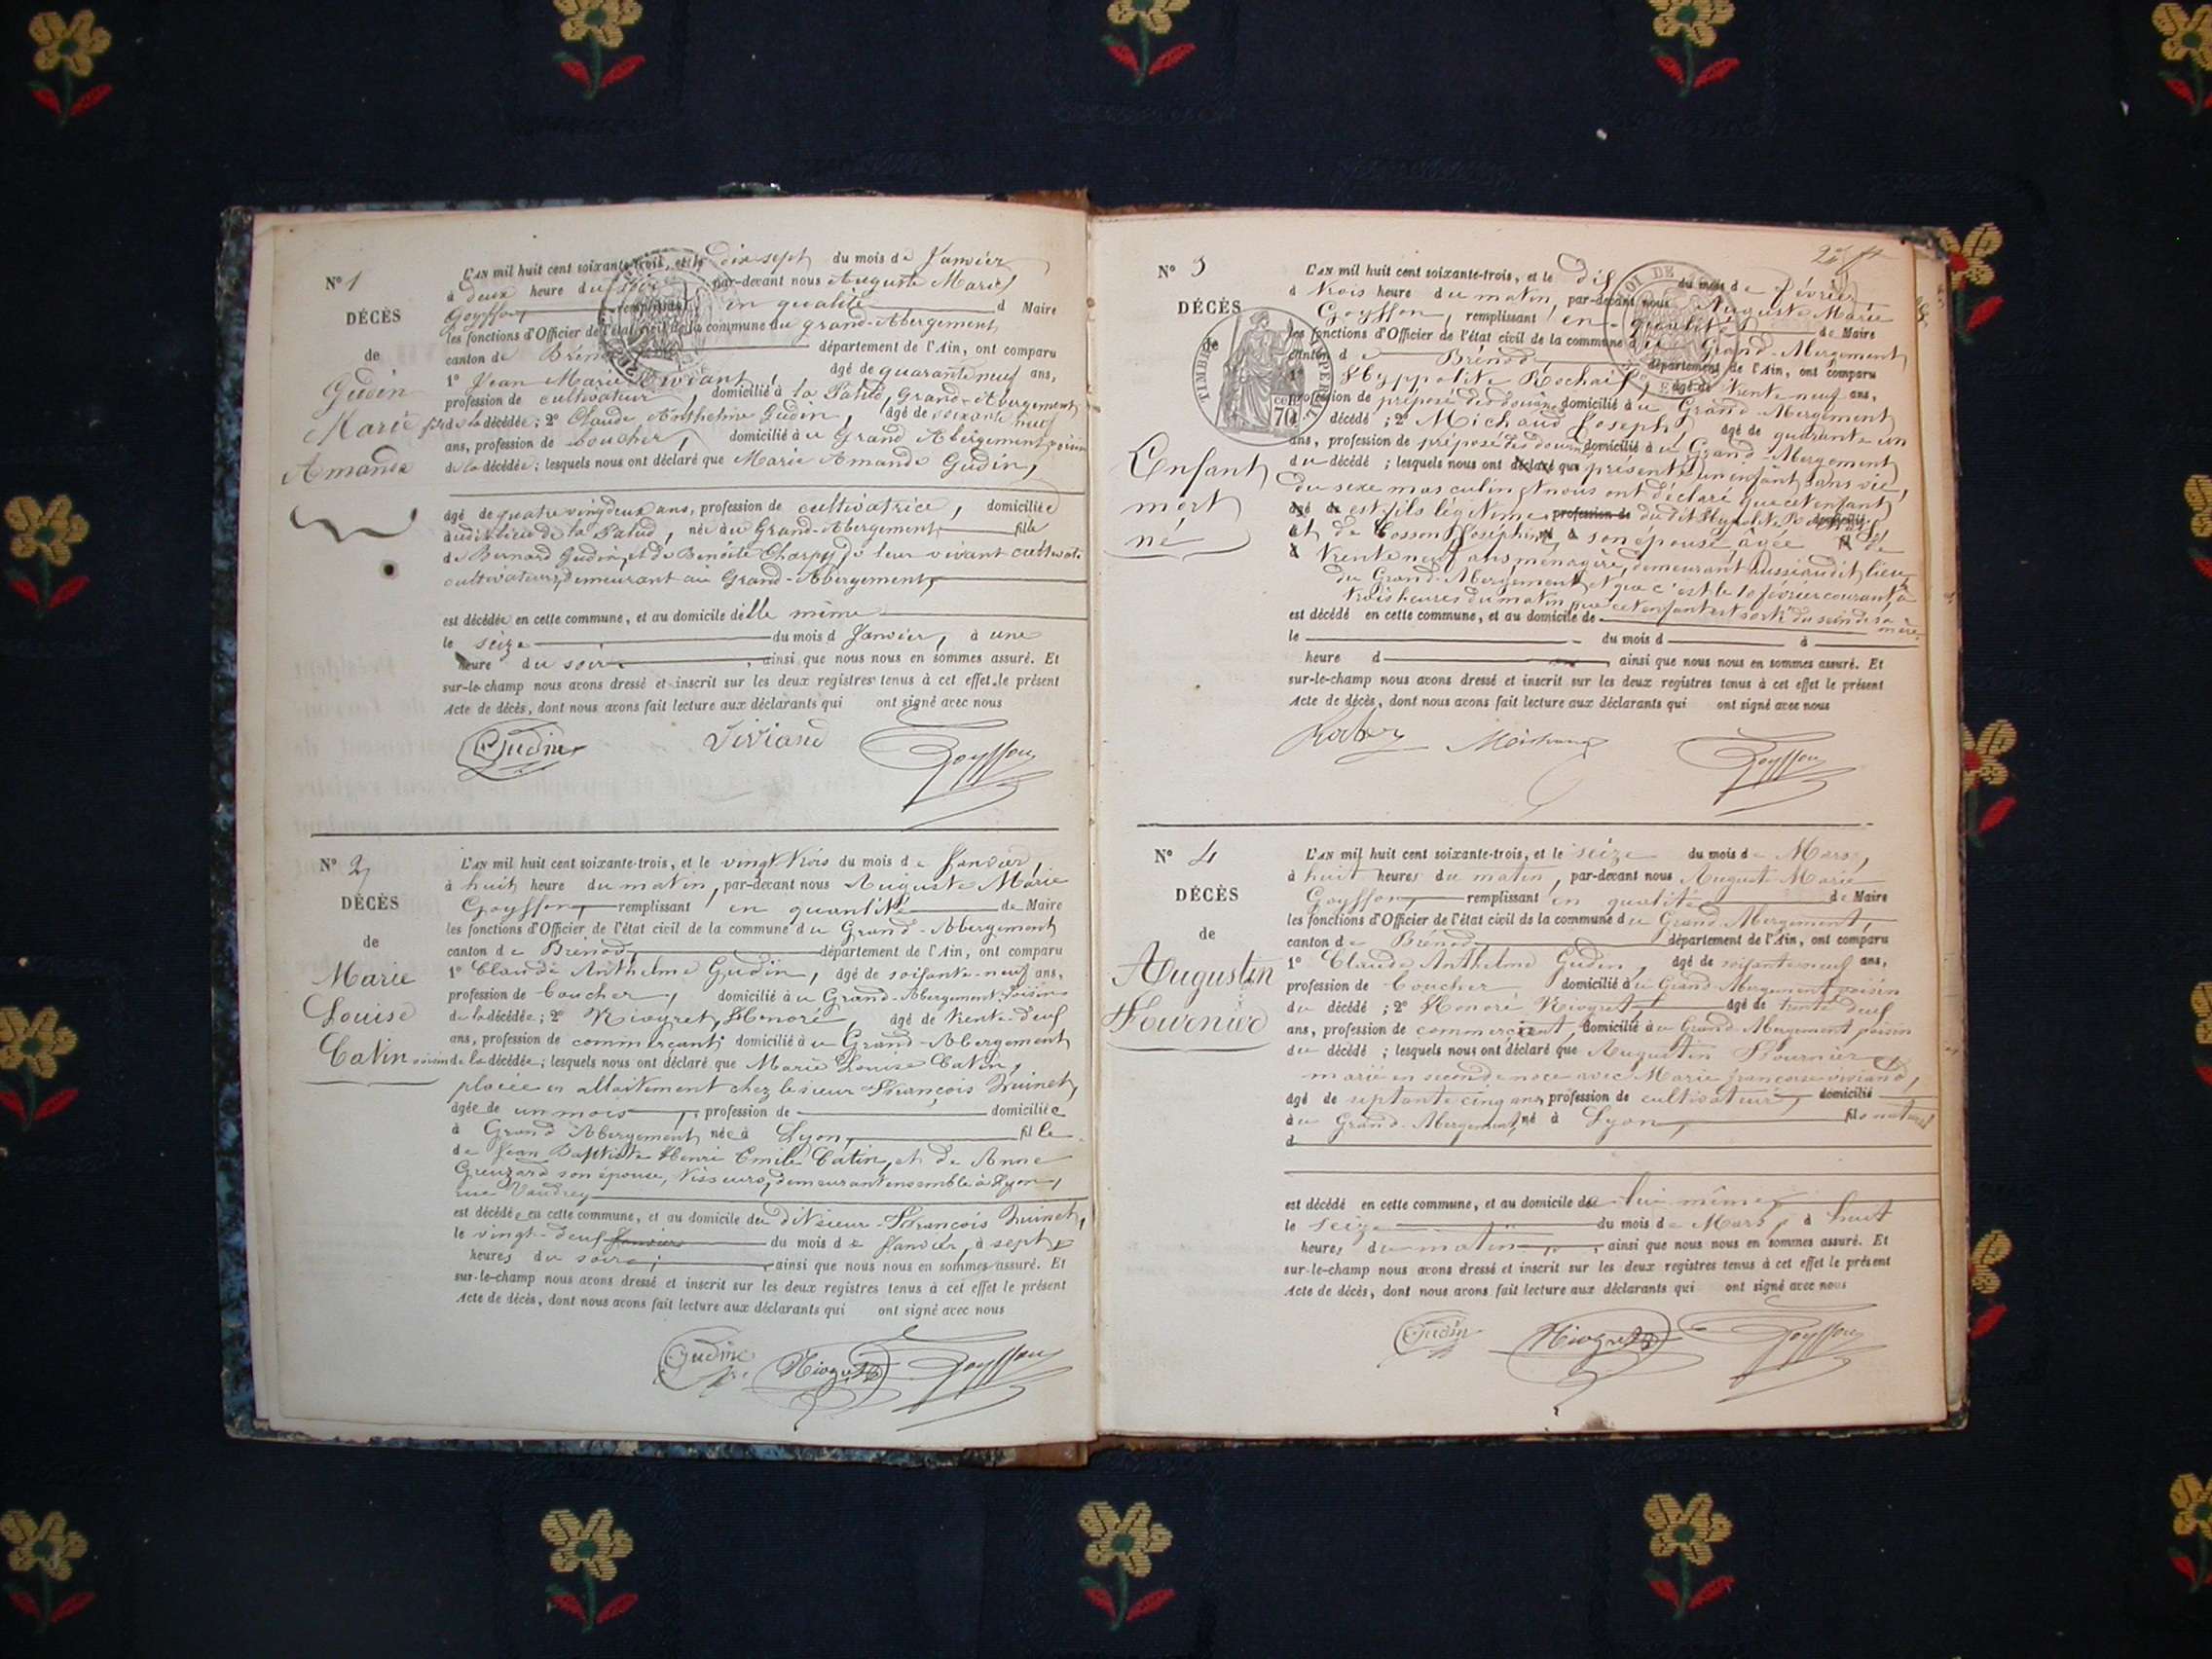 N° 1
DÉCÈS
de
Gudin
Marie
Amande
L'AN mil huit cent soixante-trois, et le dix sept du mois de Janvier
à deux heure du soir par-devant nous Auguste Marie
Goyffon, remplissant en qualité d Maire
les fonctions d'Officier de l'état civil de la commune du grand-Abergement
canton de Brénod département de l'Ain, ont comparu
1° Jean Marie Viviant, âgé de quarante neuf ans,
profession de cultivateur, domicilié à la Palud, Grand-Abergement
fils de la décédée; 2° Claude Anthelme Gudin, âgé de soixante neuf
ans, profession de boucher, domicilié à u Grand Abergement voisin
de la décédée; lesquels nous ont déclaré que Marie Amande Gudin,
âgé de quatre vingt deux ans, profession de cultivatrice, domiciliée
audit lieu de la Palud, née au Grand-Abergement fille
de Bernard Gudin, et de Benoite Charpy, de leur vivant cultivate
cultivateurs, demeurant au Grand-Abergement,
est décédée en cette commune, et au domicile d'elle même
le seize du mois d Janvier, à une
heure du soir, ainsi que nous nous en sommes assuré. Et
sur-le-champ nous avons dressé et inscrit sur les deux registres tenus à cet effet le présent
Acte de décès, dont nous avons fait lecture aux déclarants qui ont signé avec nous
Gudin Viviand Goyffon
N° 2
DÉCÈS
de
Marie
Louise
Catin
L'AN mil huit cent soixante-trois, et le vingt trois du mois de Janvier,
à huit heure du matin, par-devant nous Auguste Marie
Goyffon, remplissant en quantité de Maire
les fonctions d'Officier de l'état civil de la commune du Grand-Abergement
canton de Brénod, département de l'Ain, ont comparu
1° Claude Anthelme Gudin, âgé de soixante-neuf ans,
profession de boucher, domicilié à u Grand-Abergement voisin
de la décédée; 2° Niogret, Honoré, âgé de trente-deux
ans, profession de commerçant, domicilié à u Grand-Abergement
voisin de la décédée; lesquels nous ont déclaré que Marie Louise Catin,
placée en allaitement chez le sieur François Juinet,
âgée de un mois, profession de domiciliée
à Grand Abergement, née à Lyon, fille
de Jean Baptiste Henri Emile Catin, et de Anne
Greuzard son épouse, tisseurs, demeurant ensemble à Lyon,
rue Vaudrey
est décédée en cette commune, et au domicile du dit sieur François Juinet,
le vingt-deux Janvier du mois de Janvier, à sept
heures du soir, ainsi que nous nous en sommes assuré. Et
sur-le-champ nous avons dressé et inscrit sur les deux registres tenus à cet effet le présent
Acte de décès, dont nous avons fait lecture aux déclarants qui ont signé avec nous
Gudin Niogret Goyffon
N° 3
DÉCÈS
de
L'enfant
mort
né
TIMBRE IMPERIAL
70
L'AN mil huit cent soixante-trois, et le dix du mois de février
à trois heure du matin, par-devant nous Auguste Marie
Goyffon, remplissant en qualité de Maire
les fonctions d'Officier de l'état civil de la commune du Grand-Abergement
canton de Brénod, département de l'Ain, ont comparu
1° Hyppolite Rochaix, âgé de trente neuf ans,
profession de préposé des douanes domicilié à u Grand-Abergement
décédé; 2° Michaud Joseph, âgé de quarante un
ans, profession de préposé des douanes domicilié à u Grand-Abergement
du décédé; lesquels nous ont déclaré que présenté un enfant sans vie,
du sexe masculin et nous ont déclaré que cet enfant
âgé de est fils légitime profession de du dit Hyppolite domicilié
et de Cosson Joséphine son épouse, âgée de
trente neuf ans ménagère, demeurant aussi audit lieu
du Grand-Abergement, et que c'est le 10 février courant, à
trois heures du matin, que cet enfant est sorti du sein de sa mère
est décédé en cette commune, et au domicile de
le du mois d à
heure d, ainsi que nous nous en sommes assuré. Et
sur-le-champ nous avons dressé et inscrit sur les deux registres tenus à cet effet le présent
Acte de décès, dont nous avons fait lecture aux déclarants qui ont signé avec nous
Michaud Goyffon
N° 4
DÉCÈS
de
Augustin
Fournier
L'AN mil huit cent soixante-trois, et le seize du mois de Mars,
à huit heures du matin, par-devant nous Auguste Marie
Goyffon, remplissant en qualité de Maire
les fonctions d'Officier de l'état civil de la commune du Grand Abergement,
canton de Brénod département de l'Ain, ont comparu
1° Claude Anthelme Gudin, âgé de soixante neuf ans,
profession de boucher domicilié à u Grand Abergement voisin
du décédé; 2° Honoré Niogret, âgé de trente deux
ans, profession de commerçant, domicilié à u Grand Abergement voisin
du décédé; lesquels nous ont déclaré que Augustin Fournier
marié en seconde noce avec Marie françoise viviand,
âgé de septante cinq ans, profession de cultivateur, domicilié
à u Grand-Abergement, né à Lyon, fils naturel
d
est décédé en cette commune, et au domicile de lui même
le seize du mois de Mars, à huit
heures du matin, ainsi que nous nous en sommes assuré. Et
sur-le-champ nous avons dressé et inscrit sur les deux registres tenus à cet effet le présent
Acte de décès, dont nous avons fait lecture aux déclarants qui ont signé avec nous
Gudin Niogret Goyffon